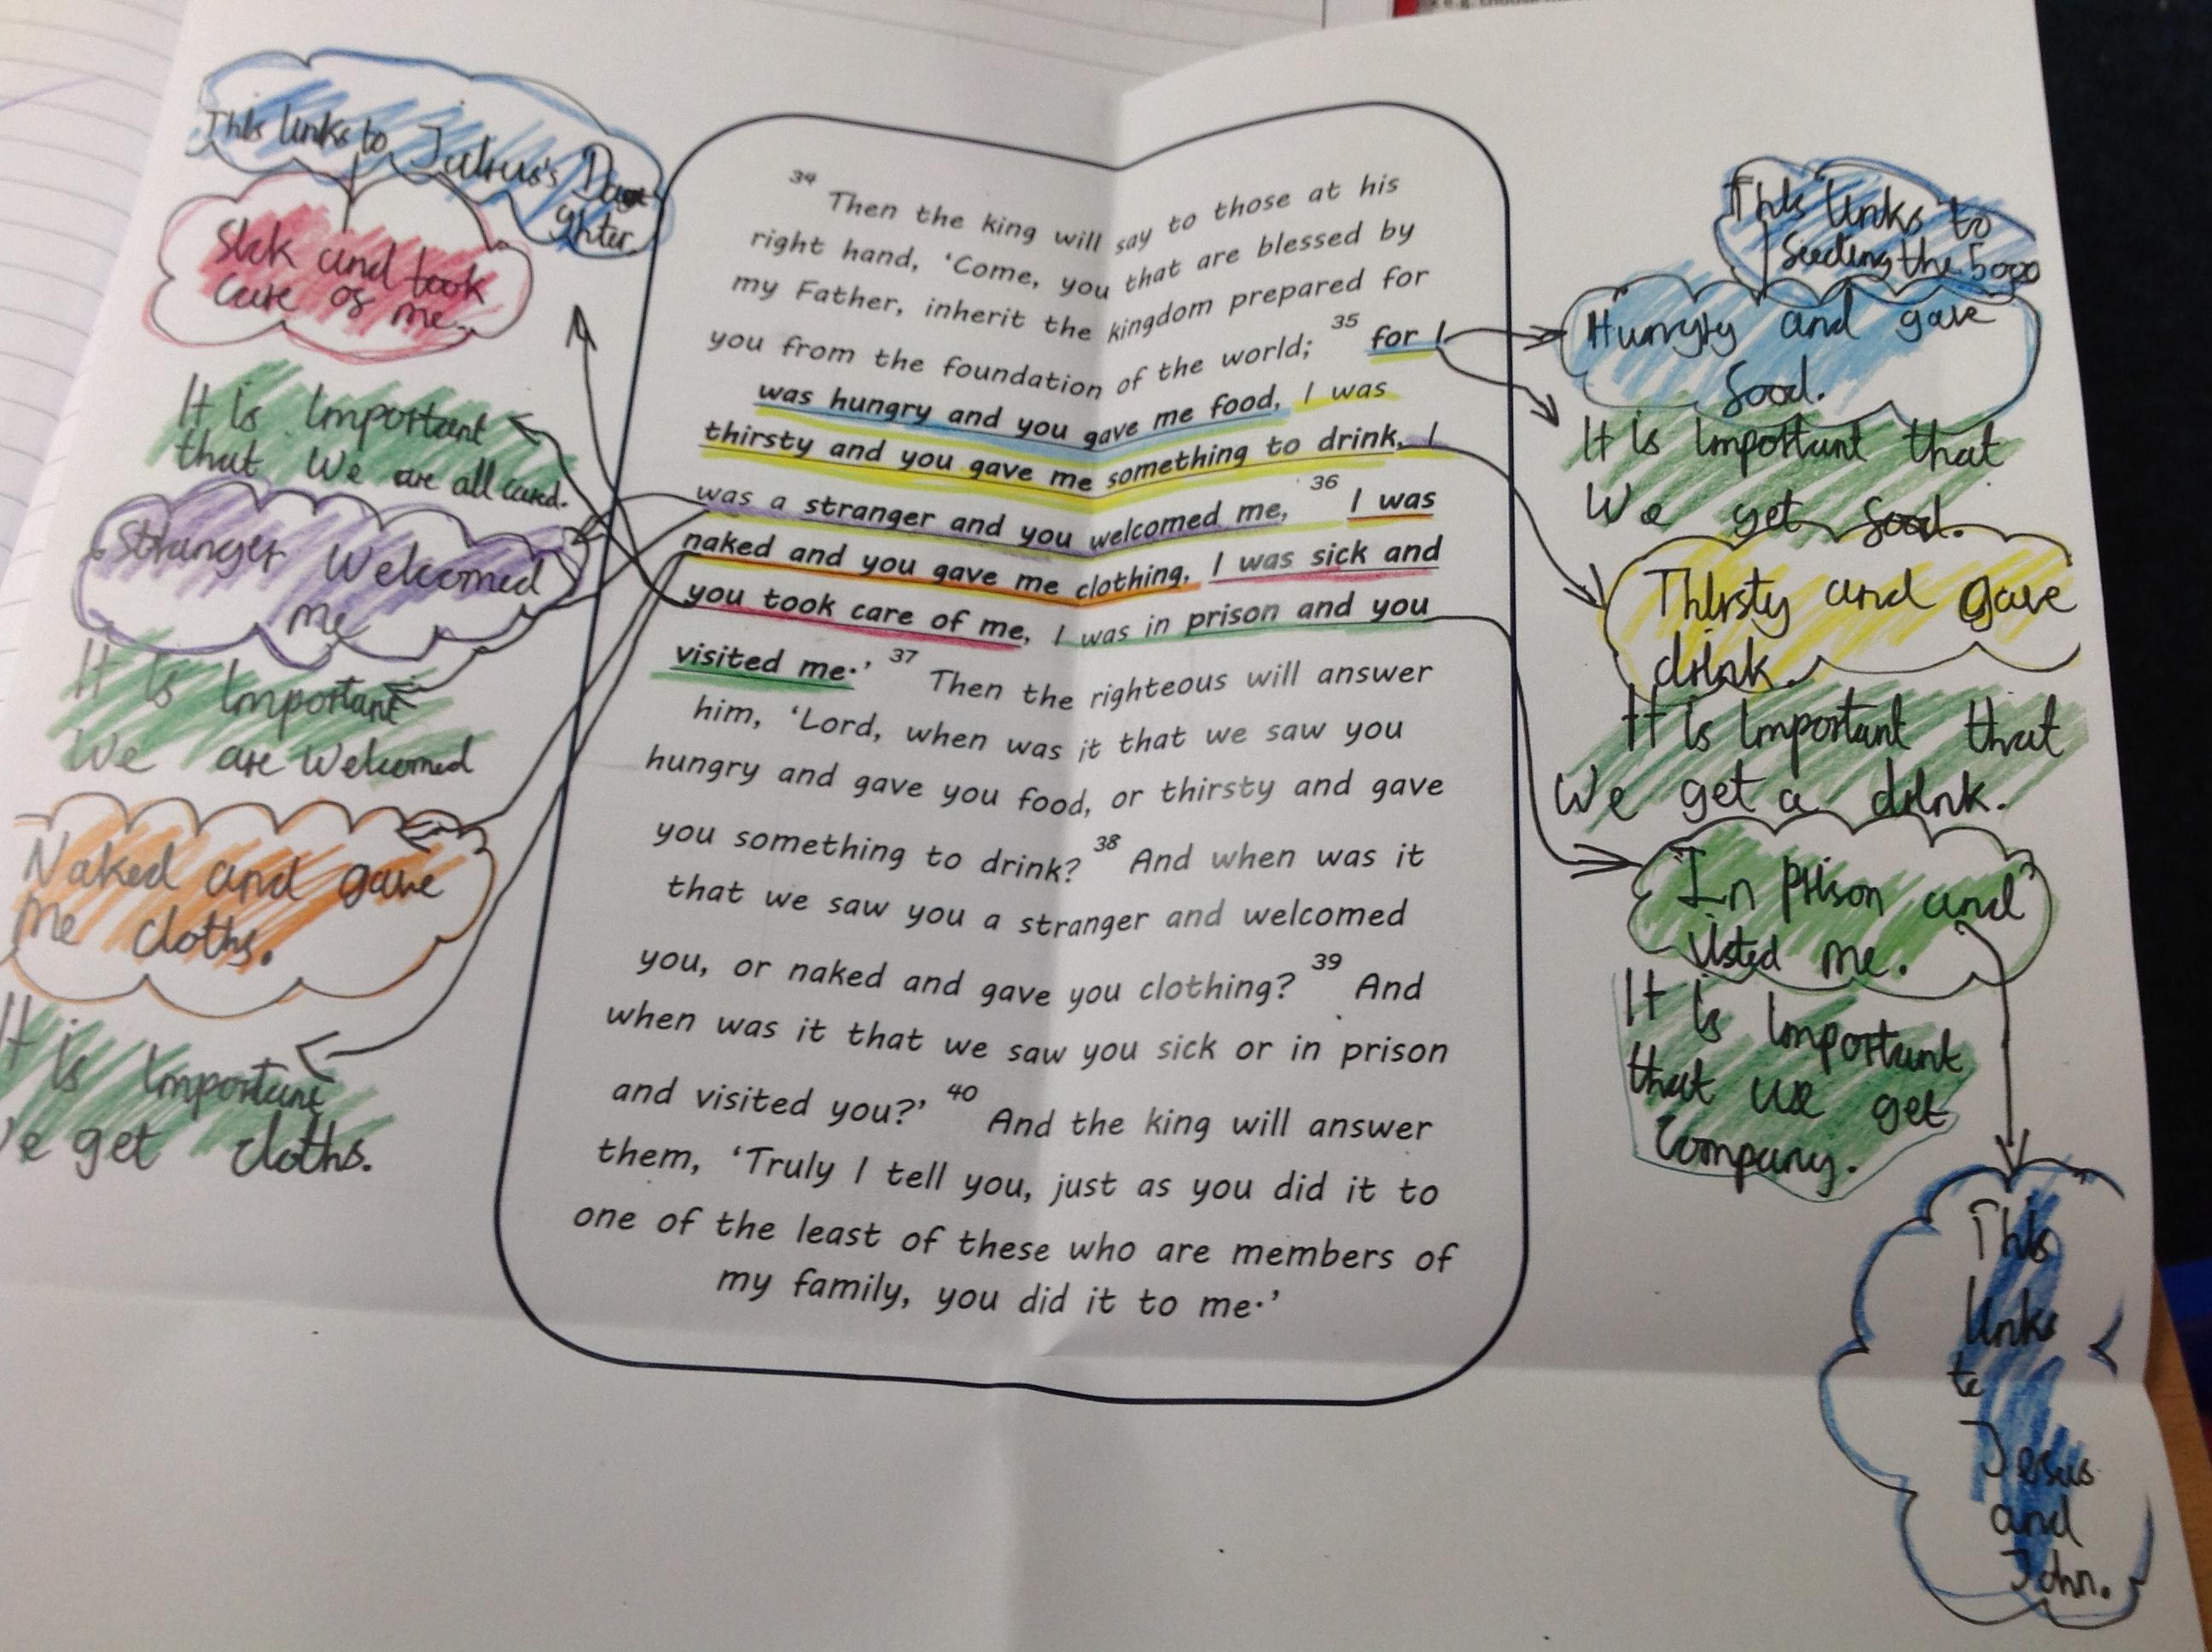 This links to Julius's Dau
ghter
Sick and took
care of me.
It is Important
that We are all cared.
Stranger Welcomed
me
It is Important
We are Welcomed
Naked and gave
me cloths.
It is Important
We get cloths.
34 Then the king will say to those at his
right hand, 'Come, you that are blessed by
my Father, inherit the kingdom prepared for
you from the foundation of the world; 35 for I
was hungry and you gave me food, I was
thirsty and you gave me something to drink, I
was a stranger and you welcomed me, 36 I was
naked and you gave me clothing, I was sick and
you took care of me, I was in prison and you
visited me.' 37 Then the righteous will answer
him, 'Lord, when was it that we saw you
hungry and gave you food, or thirsty and gave
you something to drink? 38 And when was it
that we saw you a stranger and welcomed
you, or naked and gave you clothing? 39 And
when was it that we saw you sick or in prison
and visited you?' 40 And the king will answer
them, 'Truly I tell you, just as you did it to
one of the least of these who are members of
my family, you did it to me.'
This links to
feeding the 5000
Hungry and gave
food.
It is Important that
We get food.
Thirsty and gave
drink.
It is Important that
We get a drink.
In prison and
visted me.
It is Important
that we get
Company.
This
links
to
Jesus
and
John.